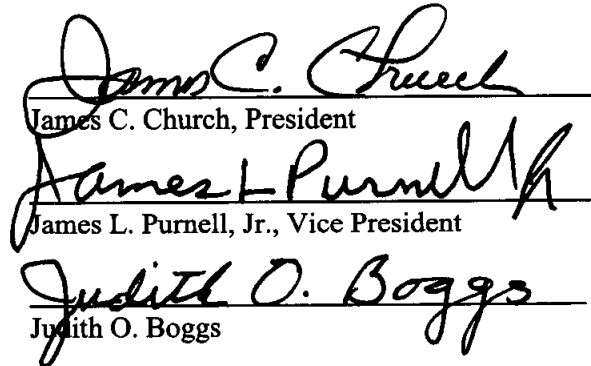 James C. Church
James C. Church, President
James L Purnell Jr
James L. Purnell, Jr., Vice President
Judith O. Boggs
Judith O. Boggs